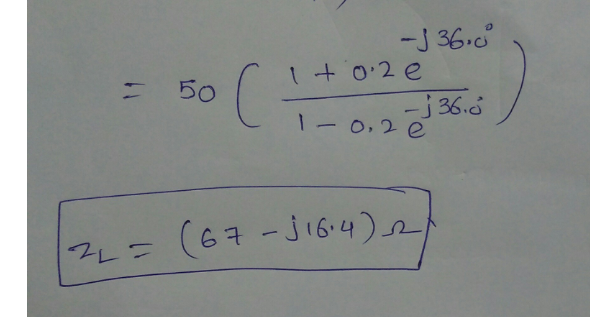 = 50 ( 1 + 0.2 e^-j36.0° / 1 - 0.2 e^-j36.0° )
Z_L = (67 - j16.4) Ω